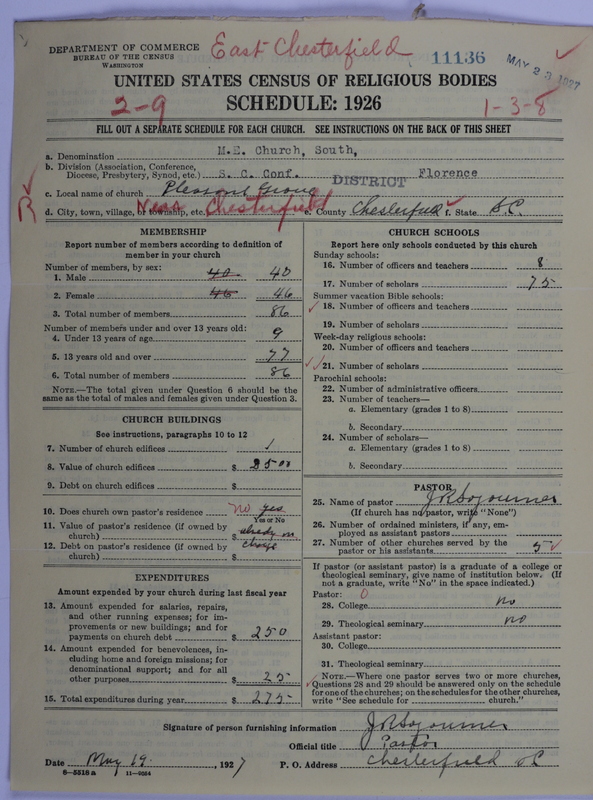 DEPARTMENT OF COMMERCE
BUREAU OF THE CENSUS
WASHINGTON
East Chesterfield
11136
MAY 23 1927
UNITED STATES CENSUS OF RELIGIOUS BODIES
2-9
SCHEDULE: 1926
1-3-8
FILL OUT A SEPARATE SCHEDULE FOR EACH CHURCH. SEE INSTRUCTIONS ON THE BACK OF THIS SHEET
a. Denomination M.E. Church, South,
b. Division (Association, Conference, Diocese, Presbytery, Synod, etc.) S. C. Conf. DISTRICT Florence
c. Local name of church Pleasant Grove
d. City, town, village, or township, etc. Near Chesterfield e. County Chesterfield f. State S.C.
MEMBERSHIP
Report number of members according to definition of
member in your church
Number of members, by sex:
1. Male 40 40
2. Female 46 46
3. Total number of members 86
Number of members under and over 13 years old:
4. Under 13 years of age 9
5. 13 years old and over 77
6. Total number of members 86
NOTE.—The total given under Question 6 should be the
same as the total of males and females given under Question 3.
CHURCH BUILDINGS
See instructions, paragraphs 10 to 12
7. Number of church edifices 1
8. Value of church edifices $ 2500
9. Debt on church edifices $
10. Does church own pastor's residence no yes
Yes or No
11. Value of pastor's residence (if owned by
church) $ already on
12. Debt on pastor's residence (if owned by charge
church) $
EXPENDITURES
Amount expended by your church during last fiscal year
13. Amount expended for salaries, repairs,
and other running expenses; for im-
provements or new buildings; and for
payments on church debt $ 250
14. Amount expended for benevolences, in-
cluding home and foreign missions; for
denominational support; and for all
other purposes $ 25
15. Total expenditures during year $ 275
CHURCH SCHOOLS
Report here only schools conducted by this church
Sunday schools:
16. Number of officers and teachers 8
17. Number of scholars 75
Summer vacation Bible schools:
18. Number of officers and teachers
19. Number of scholars
Week-day religious schools:
20. Number of officers and teachers
21. Number of scholars
Parochial schools:
22. Number of administrative officers
23. Number of teachers—
a. Elementary (grades 1 to 8)
b. Secondary
24. Number of scholars—
a. Elementary (grades 1 to 8)
b. Secondary
PASTOR
25. Name of pastor J R Sojourner
(If church has no pastor, write "None")
26. Number of ordained ministers, if any, em-
ployed as assistant pastors
27. Number of other churches served by the
pastor or his assistants 5
If pastor (or assistant pastor) is a graduate of a college or
theological seminary, give name of institution below. (If
not a graduate, write "No" in the space indicated.)
Pastor: 0
28. College no
29. Theological seminary no
Assistant pastor:
30. College
31. Theological seminary
NOTE.—Where one pastor serves two or more churches,
Questions 28 and 29 should be answered only on the schedule
for one of the churches; on the schedules for the other churches,
write "See schedule for church."
Signature of person furnishing information J R Sojourner
Official title Pastor
Date May 19, 1927 P. O. Address Chesterfield SC
6-5518 a 11-9054